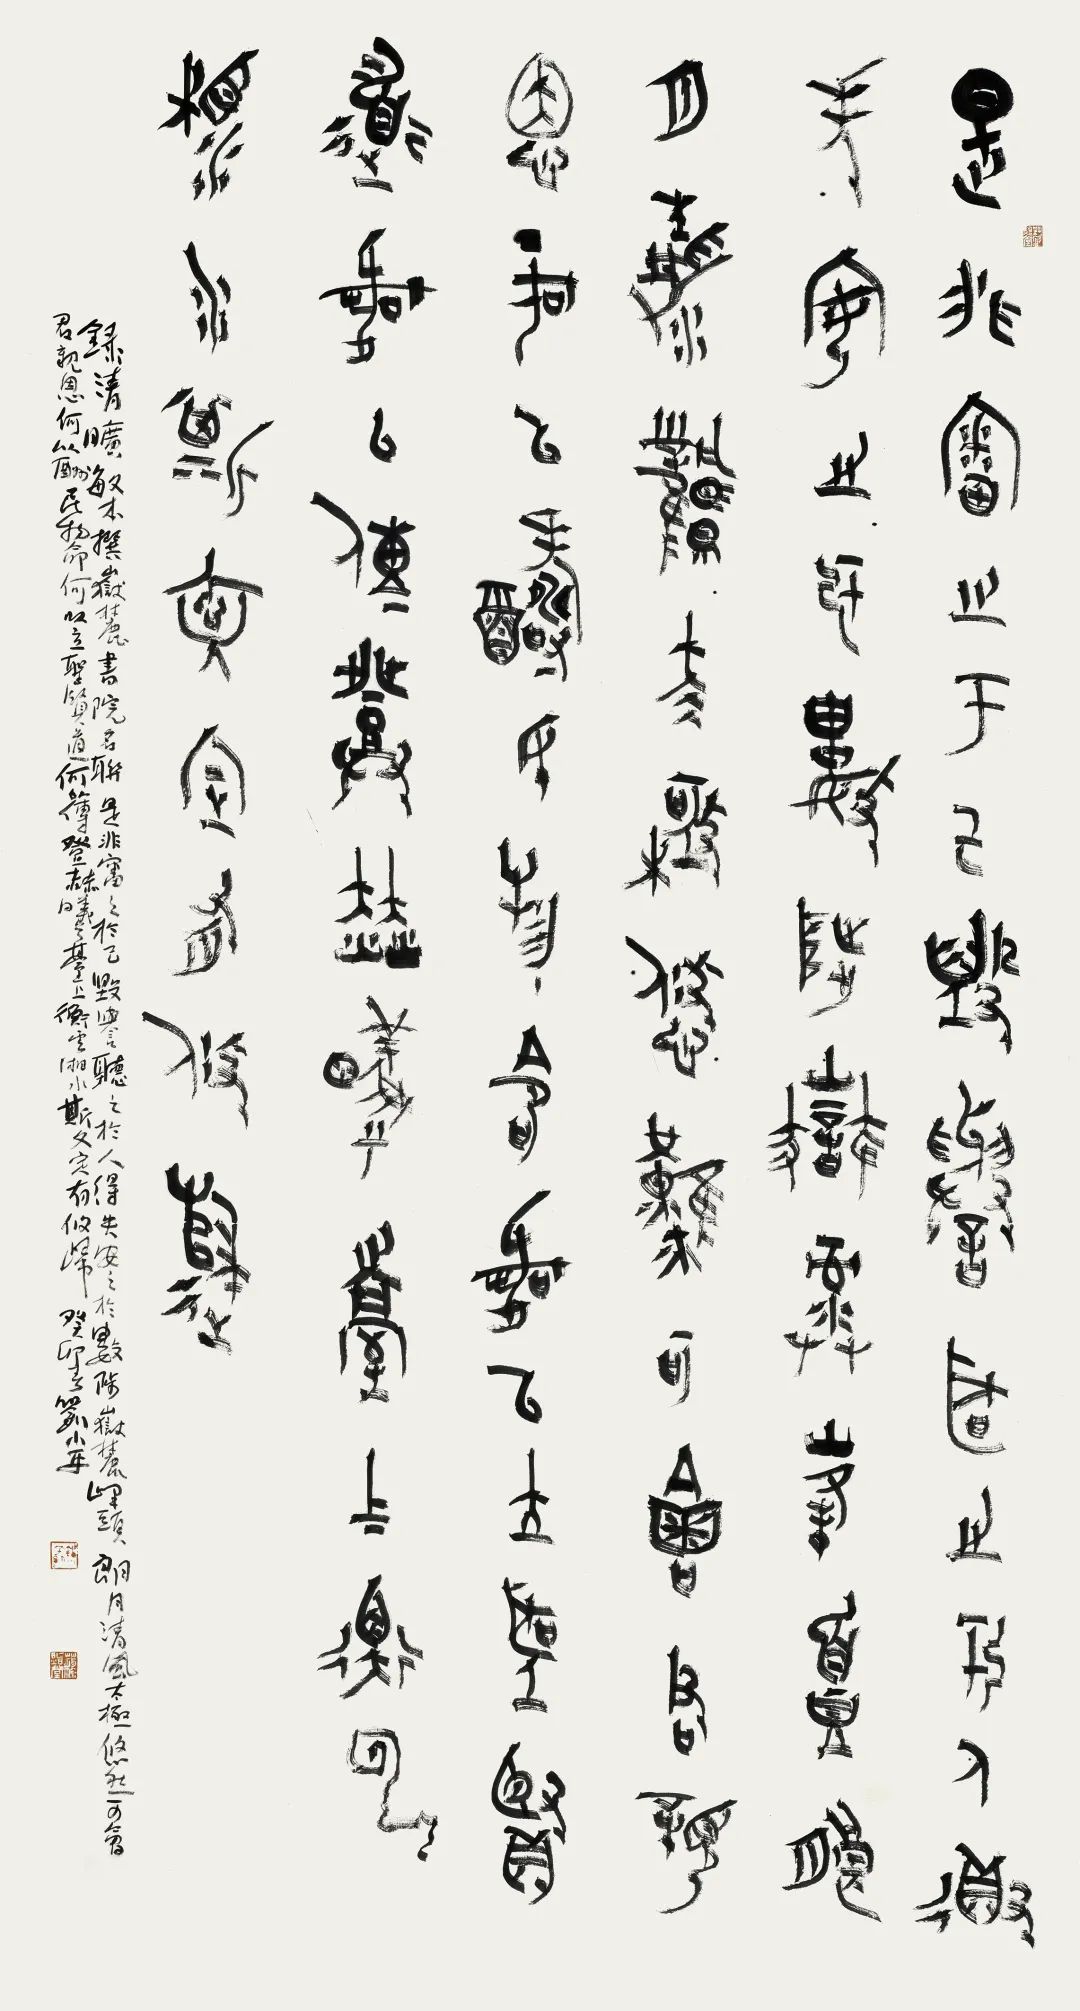 是非審之于己毀譽聽之於人得
失安之於數陟嶽麓峯頭朗
月清風太極悠然可會君親
恩何以酬民物命何以立聖賢
道何以傳登赫曦臺上衡雲
湘水斯文定有攸歸
錄清曠敏本撰嶽麓書院名聯是非審之於己毀譽聽之於人得失安之於數陟嶽麓峰頭朗月清風太極悠然可會
君親恩何以酬民物命何以立聖賢道何以傳登赫曦臺上衡雲湘水斯文定有攸歸癸卯春劉小